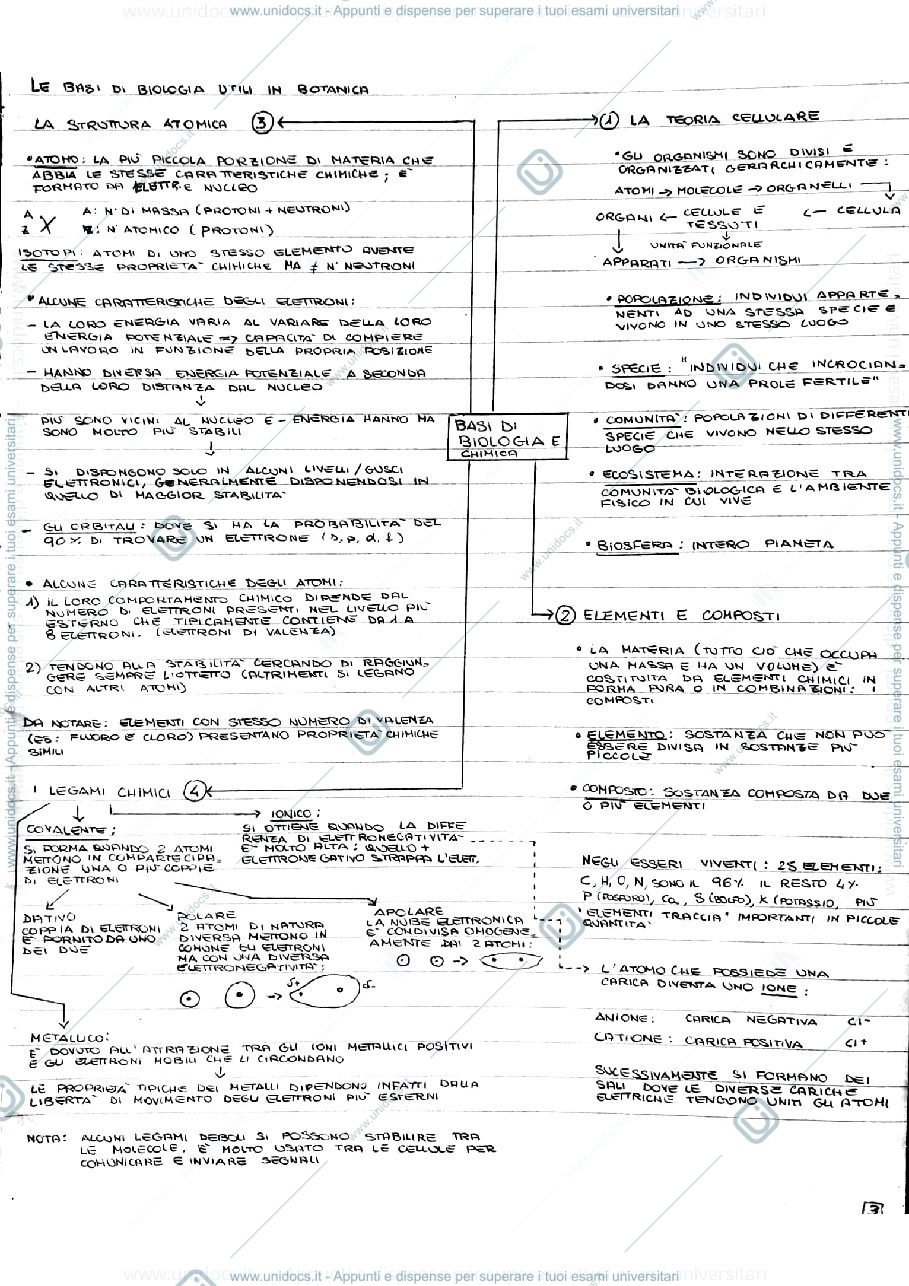 www.unidocs.it - Appunti e dispense per superare i tuoi esami universitari
LE BASI DI BIOLOGIA UTILI IN BOTANICA
LA STRUTTURA ATOMICA ③
• ATOMO: LA PIÙ PICCOLA PORZIONE DI MATERIA CHE
ABBIA LE STESSE CARATTERISTICHE CHIMICHE; È
FORMATO DA ELETTR. E NUCLEO
A
Z X
A: N° DI MASSA (PROTONI + NEUTRONI)
Z: N° ATOMICO (PROTONI)
ISOTOPI: ATOMI DI UNO STESSO ELEMENTO AVENTE
LE STESSE PROPRIETÀ CHIMICHE MA ≠ N° NEUTRONI
• ALCUNE CARATTERISTICHE DEGLI ELETTRONI:
- LA LORO ENERGIA VARIA AL VARIARE DELLA LORO
ENERGIA POTENZIALE => CAPACITÀ DI COMPIERE
UN LAVORO IN FUNZIONE DELLA PROPRIA POSIZIONE
- HANNO DIVERSA ENERGIA POTENZIALE A SECONDA
DELLA LORO DISTANZA DAL NUCLEO
↓
PIÙ SONO VICINI AL NUCLEO E - ENERGIA HANNO MA
SONO MOLTO PIÙ STABILI
↓
- SI DISPONGONO SOLO IN ALCUNI LIVELLI/GUSCI
ELETTRONICI, GENERALMENTE DISPONENDOSI IN
QUELLO DI MAGGIOR STABILITÀ
- GLI ORBITALI: DOVE SI HA LA PROBABILITÀ DEL
90% DI TROVARE UN ELETTRONE (s, p, d, f)
• ALCUNE CARATTERISTICHE DEGLI ATOMI:
1) IL LORO COMPORTAMENTO CHIMICO DIPENDE DAL
NUMERO DI ELETTRONI PRESENTI NEL LIVELLO PIÙ
ESTERNO CHE TIPICAMENTE CONTIENE DA 1 A
8 ELETTRONI. (ELETTRONI DI VALENZA)
2) TENDONO ALLA STABILITÀ CERCANDO DI RAGGIUN-
GERE SEMPRE L'OTTETTO (ALTRIMENTI SI LEGANO
CON ALTRI ATOMI)
DA NOTARE: ELEMENTI CON STESSO NUMERO DI VALENZA
(ES: FLUORO E CLORO) PRESENTANO PROPRIETÀ CHIMICHE
SIMILI
BASI DI
BIOLOGIA E
CHIMICA
① LA TEORIA CELLULARE
• GLI ORGANISMI SONO DIVISI E
ORGANIZZATI GERARCHICAMENTE:
ATOMI → MOLECOLE → ORGANELLI
ORGANI ← CELLULE E ← CELLULA
TESSUTI
↓
UNITÀ FUNZIONALE
APPARATI → ORGANISMI
• POPOLAZIONE: INDIVIDUI APPARTE-
NENTI AD UNA STESSA SPECIE E
VIVONO IN UNO STESSO LUOGO
• SPECIE: "INDIVIDUI CHE INCROCIAN-
DOSI DANNO UNA PROLE FERTILE"
• COMUNITÀ: POPOLAZIONI DI DIFFERENTI
SPECIE CHE VIVONO NELLO STESSO
LUOGO
• ECOSISTEMA: INTERAZIONE TRA
COMUNITÀ BIOLOGICA E L'AMBIENTE
FISICO IN CUI VIVE
• BIOSFERA: INTERO PIANETA
② ELEMENTI E COMPOSTI
• LA MATERIA (TUTTO CIÒ CHE OCCUPA
UNA MASSA E HA UN VOLUME) È
COSTITUITA DA ELEMENTI CHIMICI IN
FORMA PURA O IN COMBINAZIONI: I
COMPOSTI
• ELEMENTO: SOSTANZA CHE NON PUÒ
ESSERE DIVISA IN SOSTANZE PIÙ
PICCOLE
• COMPOSTO: SOSTANZA COMPOSTA DA DUE
O PIÙ ELEMENTI
NEGLI ESSERI VIVENTI: 25 ELEMENTI:
C, H, O, N, SONO IL 96% IL RESTO 4%
P (FOSFORO), Ca, S (ZOLFO), K (POTASSIO, PIÙ
'ELEMENTI TRACCIA' IMPORTANTI IN PICCOLE
QUANTITÀ
L'ATOMO CHE POSSIEDE UNA
CARICA DIVENTA UNO IONE:
ANIONE: CARICA NEGATIVA Cl-
CATIONE: CARICA POSITIVA Cl+
SUCESSIVAMENTE SI FORMANO DEI
SALI DOVE LE DIVERSE CARICHE
ELETTRICHE TENGONO UNITI GLI ATOMI
I LEGAMI CHIMICI ④
COVALENTE:
SI FORMA QUANDO 2 ATOMI
METTONO IN COMPARTECIPA-
ZIONE UNA O PIÙ COPPIE
DI ELETTRONI
IONICO:
SI OTTIENE QUANDO LA DIFFE
RENZA DI ELETTRONEGATIVITÀ
È MOLTO ALTA: QUELLO +
ELETTRONEGATIVO STRAPPA L'ELET.
DATIVO
COPPIA DI ELETTRONI
È FORNITO DA UNO
DEI DUE
POLARE
2 ATOMI DI NATURA
DIVERSA METTONO IN
COMUNE GLI ELETTRONI
MA CON UNA DIVERSA
ELETTRONEGATIVITÀ:
δ+ δ-
APOLARE
LA NUBE ELETTRONICA
È CONDIVISA OMOGENE-
AMENTE DAI 2 ATOMI:
METALLICO:
È DOVUTO ALL'ATTRAZIONE TRA GLI IONI METALLICI POSITIVI
E GLI ELETTRONI MOBILI CHE LI CIRCONDANO
↓
LE PROPRIETÀ TIPICHE DEI METALLI DIPENDONO INFATTI DALLA
LIBERTÀ DI MOVIMENTO DEGLI ELETTRONI PIÙ ESTERNI
NOTA: ALCUNI LEGAMI DEBOLI SI POSSONO STABILIRE TRA
LE MOLECOLE, È MOLTO USATO TRA LE CELLULE PER
COMUNICARE E INVIARE SEGNALI
3
www.unidocs.it - Appunti e dispense per superare i tuoi esami universitari